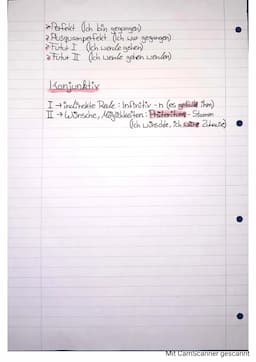 →Perfekt (Ich bin gegangen)
→Plusquamperfekt (Ich war gegangen)
→Futur I (Ich werde gehen)
→Futur II (Ich werde gehen werden)
Konjunktiv
I → indirekte Rede: Infinitiv -n (es ihm)
II → Wünsche, Möglichkeiten: Präteritum - Stamm
(Ich wünschte, ich wäre Zuhause)
Mit CamScanner gescannt